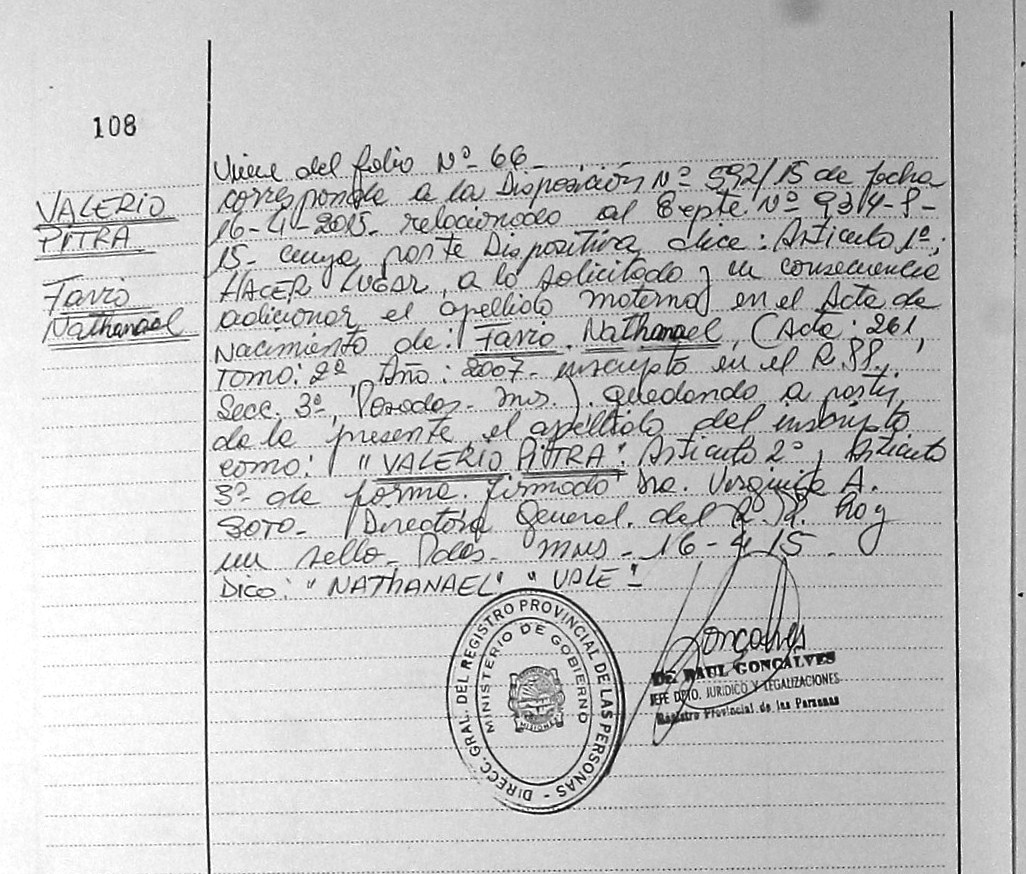 108
VALERIO
PITRA
Favio
Nathanael
Viene del folio Nº 66-
corresponde a la Disposición Nº 592/15 de fecha
16-4-2015- relacionado al Expte Nº 9314-P-
15- cuya parte Dispositiva dice: Artículo 1º:
HACER LUGAR, a lo solicitado y en consecuencia
adicionar el apellido materno en el Acta de
Nacimiento de: Favio Nathanael, (Acta: 261,
Tomo: 2º, Año: 2007- inscripto en el R.PP.,
Secc. 3º, Posadas- Mns.). quedando a partir
de la presente, el apellido del inscripto
como: "VALERIO PITRA". Artículo 2º, Artículo
3º de forma. Firmado Dra. Virginia A.
SOTO- Directora General. del R.P. Hay
un sello- Pdas- Mns- 16-4-15.
Dico: "NATHANAEL" "VALE"-
DIRECC. GRAL. DEL REGISTRO PROVINCIAL DE LAS PERSONAS -
MINISTERIO DE GOBIERNO
MISIONES
Gonçalves
Dr. RAUL GONÇALVES
JEFE DPTO. JURIDICO Y LEGALIZACIONES
Registro Provincial de las Personas